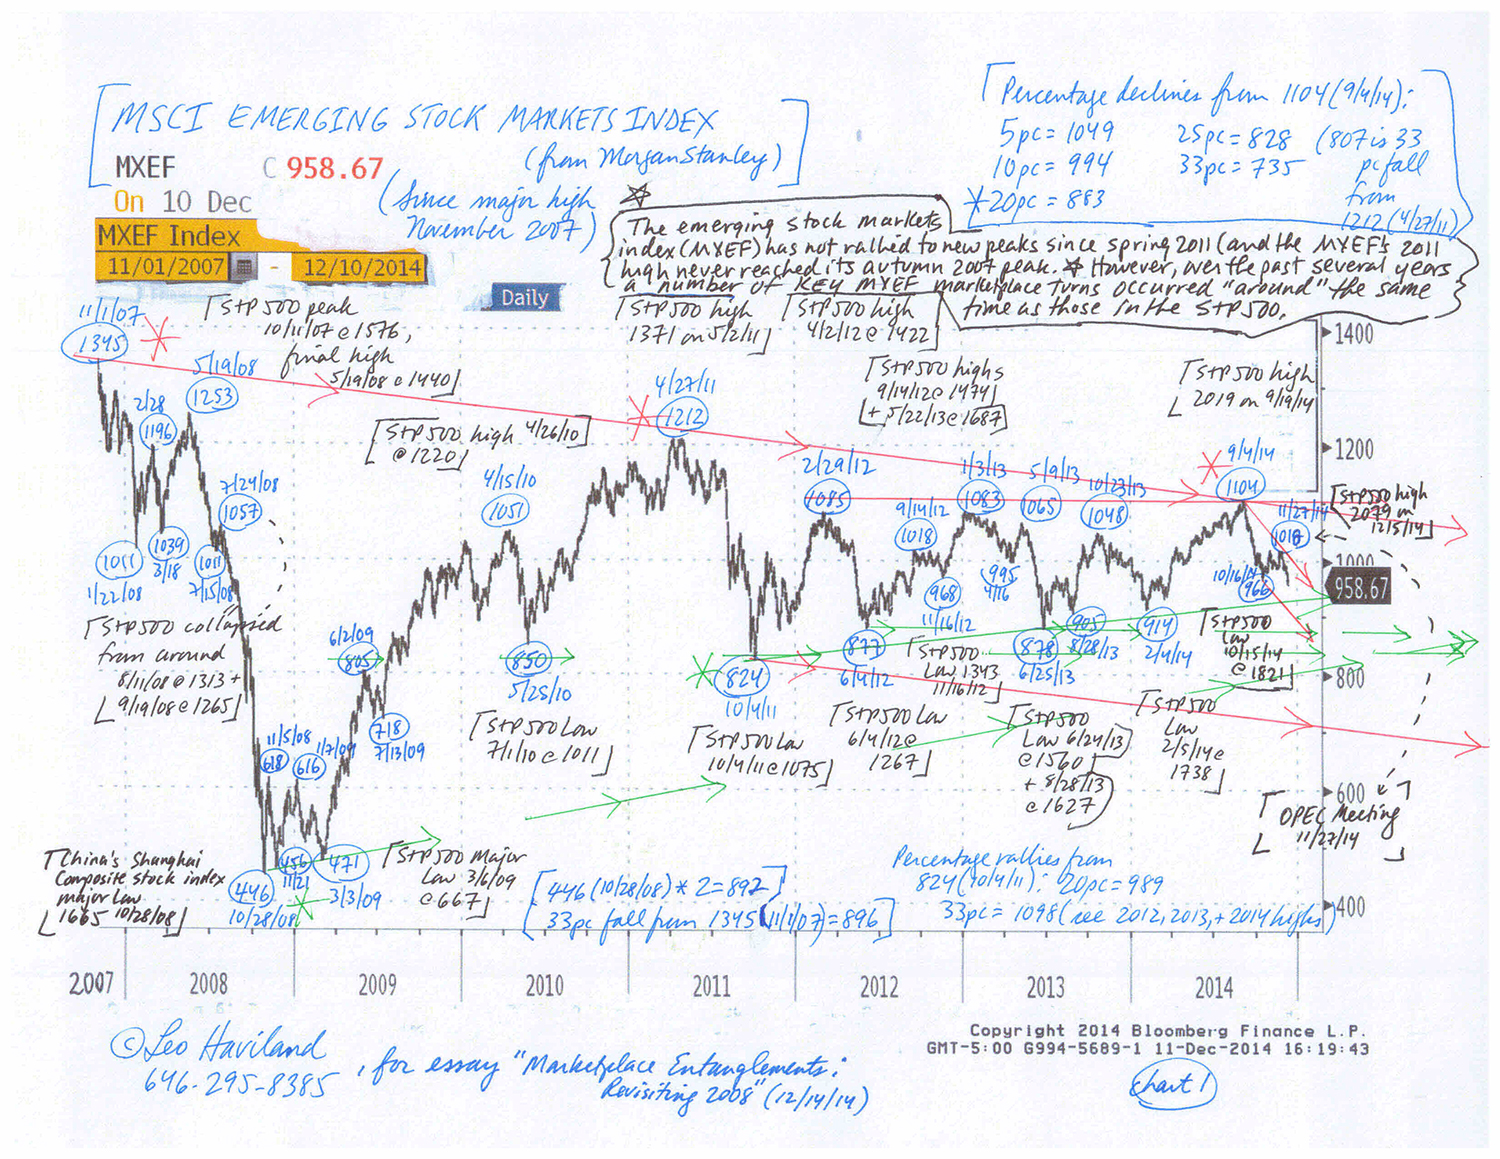 MSCI EMERGING STOCK MARKETS INDEX
(from Morgan Stanley)
MXEF C 958.67
On 10 Dec
(Since major high
November 2007)
MXEF Index
11/01/2007 - 12/10/2014
Daily
Percentage declines from 1104 (9/4/14):
5pc = 1049 25pc = 828 (807 is 33
10pc = 994 33pc = 735 pc fall
*20pc = 883 from
1212 (4/27/11)
The emerging stock markets
index (MXEF) has not rallied to new peaks since spring 2011 (and the MXEF's 2011
high never reached its autumn 2007 peak. However, over the past several years
a number of KEY MXEF marketplace turns occurred "around" the same
time as those in the S+P 500.
11/1/07
1345
S+P 500 peak
10/11/07 @ 1576,
final high
5/19/08 @ 1440
5/19/08
1253
2/28
1196
7/24/08
1057
1011
1/22/08
1039
3/18
1011
7/15/08
S+P 500 collapsed
from around
8/11/08 @ 1313 +
9/19/08 @ 1265
S+P 500 high 4/26/10
@ 1220
4/15/10
1051
S+P 500 high
1371 on 5/2/11
4/27/11
1212
S+P 500 high
4/2/12 @ 1422
S+P 500 highs
9/14/12 @ 1474
+ 5/22/13 @ 1687
S+P 500 high
2019 on 9/19/14
2/29/12
1085
9/14/12
1018
1/3/13
1083
5/9/13
1065
10/23/13
1048
9/4/14
1104
11/27/14
1018
S+P 500 high
2079 on
12/5/14
1400
1200
1000
958.67
800
600
400
6/2/09
805
718
7/13/09
11/5/08
618
1/7/09
616
850
5/25/10
S+P 500 Low
7/1/10 @ 1011
824
10/4/11
S+P 500 Low
10/4/11 @ 1075
877
6/4/12
S+P 500 Low
6/4/12 @
1267
968
11/16/12
S+P 500
Low 1343
11/16/12
995
4/16
878
6/25/13
905
8/28/13
S+P 500
Low 6/24/13
@ 1560
+ 8/28/13
@ 1627
914
2/4/14
S+P 500
Low
2/5/14 @
1738
10/16/14
966
S+P 500
Low
10/15/14
@ 1821
OPEC Meeting
11/27/14
China's Shanghai
Composite stock index
major Low
1665 10/28/08
446
10/28/08
456
11/21
471
3/3/09
S+P 500 Major
Low 3/6/09
@ 667
446 (10/28/08) * 2 = 892
33pc fall from 1345 (11/1/07) = 896
Percentage rallies from
824 (10/4/11): 20pc = 989
33pc = 1098 (see 2012, 2013, + 2014 highs)
2007 2008 2009 2010 2011 2012 2013 2014
Copyright 2014 Bloomberg Finance L.P.
GMT-5:00 G994-5689-1 11-Dec-2014 16:19:43
© Leo Haviland
646-295-8385
, for essay "Marketplace Entanglements:
Revisiting 2008" (12/14/14)
Chart 1